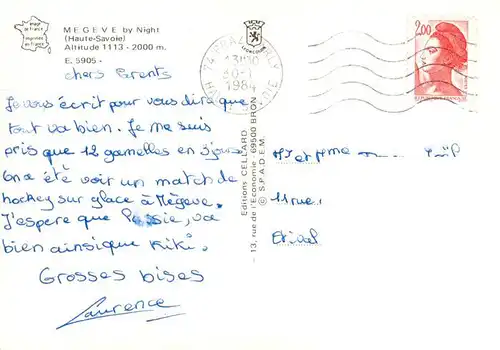 image de France
imprimée en France
MEGEVE by Night
(Haute-Savoie)
Altitude 1113 - 2000 m.
E. 5905 -
chers Parents
Je vous écrit pour vous dire que
tout va bien. Je me suis
pris que 12 gamelles en 3 jours
On a été voir un match de
hockey sur glace à Mègève.
J'espere que va
bien ainsique Kiki.
Grosses bises
Laurence
Editions CELLARD
13, rue de l'Economie - 69500 BRON
© S.P.A.D.E.M.
LION D'OR
74 PRAZ
13H30
1984
HAUTE SAVOIE
2,00
REPUBLIQUE FRANÇAISE
Mr et Mme
11 rue
Etival